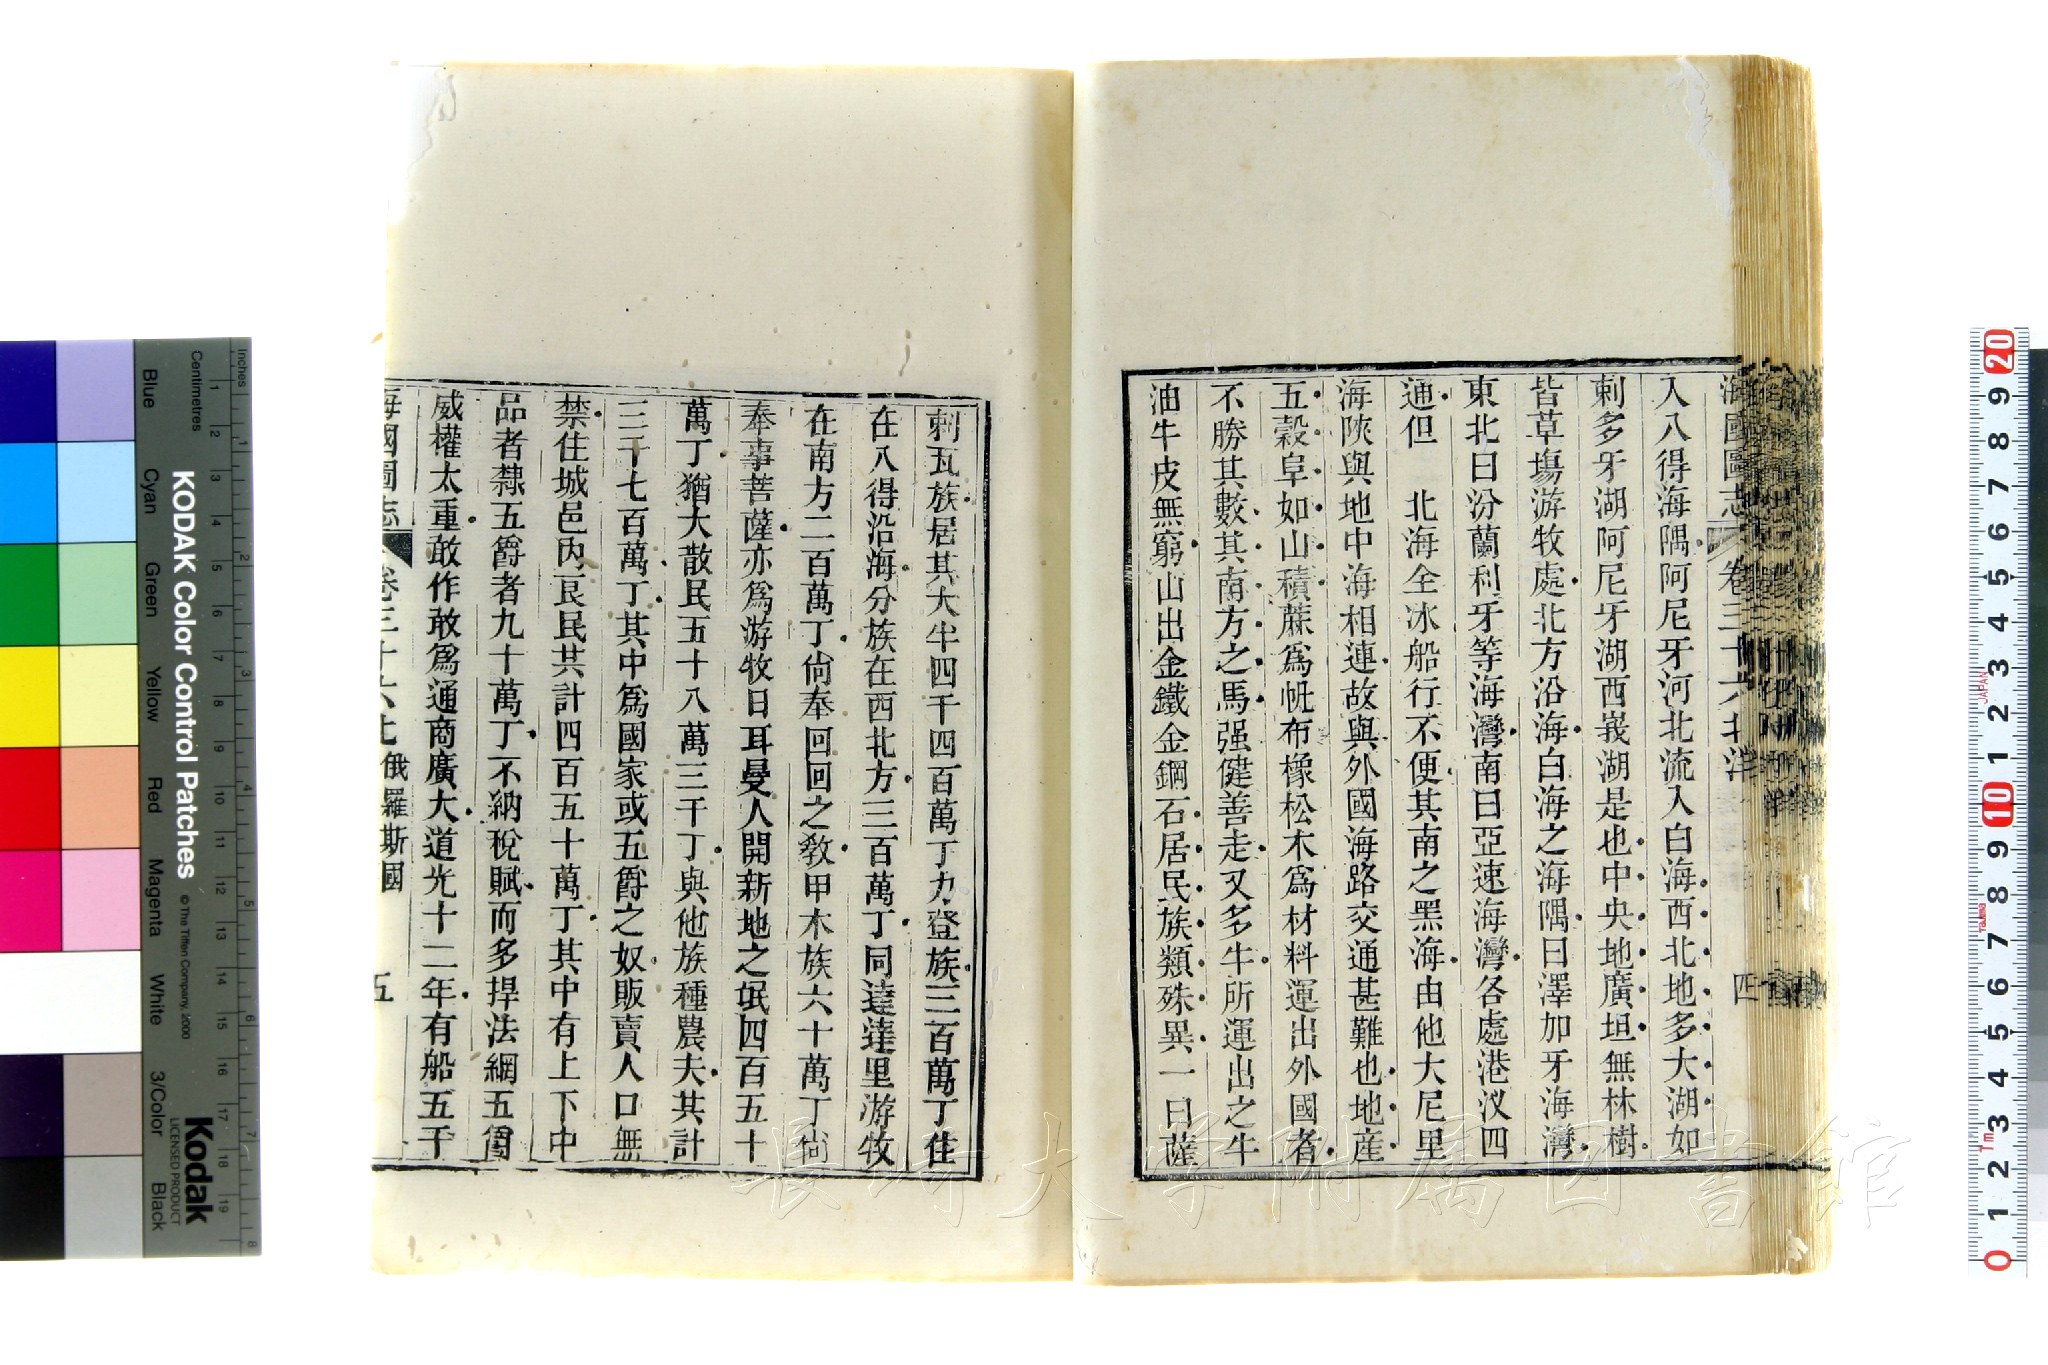 海國圖志 卷三十六 北洋 四
入八得海隅阿尼牙河北流入白海西北地多大湖如
剌多牙湖阿尼牙湖西峩湖是也中央地廣坦無林樹
皆草塲游牧處北方沿海白海之海隅曰澤加牙海灣
東北曰汾蘭利牙等海灣南曰亞速海灣各處港汊四
通但 北海全冰船行不便其南之黑海由他大尼里
海陝與地中海相連故與外國海路交通甚難也地産
五穀阜如山積蔴爲帆布橡松木爲材料運出外國者
不勝其數其南方之馬强健善走又多牛所運出之牛
油牛皮無窮山出金鐵金鋼石居民族類殊異一曰薩
剌瓦族居其大半四千四百萬丁力登族三百萬丁住
在八得沿海分族在西北方三百萬丁同達達里游牧
在南方二百萬丁尙奉回回之敎甲木族六十萬丁尙
奉事菩薩亦爲游牧日耳曼人開新地之氓四百五十
萬丁猶大散民五十八萬三千丁與他族種農夫其計
三千七百萬丁其中爲國家或五爵之奴販賣人口無
禁住城邑內良民共計四百五十萬丁其中有上下中
品者隸五爵者九十萬丁不納稅賦而多捍法網五爵
威權太重敢作敢爲通商廣大道光十二年有船五千
海國圖志 卷三十六 北 俄羅斯國 五
KODAK Color Control Patches
© The Tiffen Company, 2000
Kodak
LICENSED PRODUCT
Inches
Centimetres
Blue Cyan Green Yellow Red Magenta White 3/Color Black
1 2 3 4 5 6 7 8 9 10 11 12 13 14 15 16 17 18 19
1 2 3 4 5 6 7 8
20 9 8 7 6 5 4 3 2 1 10 9 8 7 6 5 4 3 2 1 0
JAPAN
長崎大学附属図書館